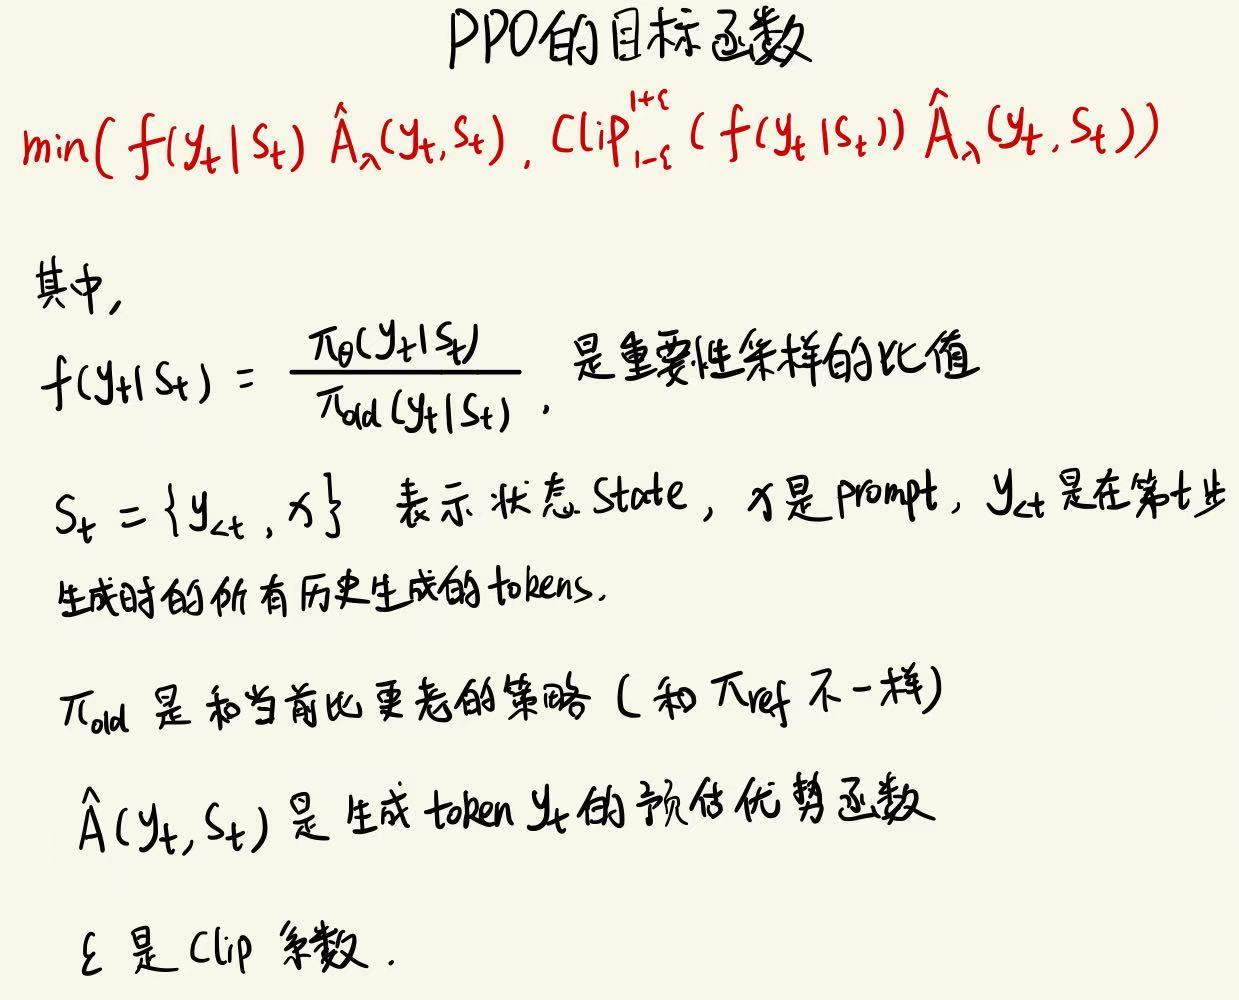 PPO的目标函数
min( f(y_t|S_t) Â_λ(y_t,S_t), Clip_{1-ε}^{1+ε} ( f(y_t|S_t)) Â_λ(y_t,S_t))
其中,
f(y_t|S_t) = π_θ(y_t|S_t) / π_old(y_t|S_t), 是重要性采样的比值
S_t = {y_{<t}, x} 表示状态State, x是prompt, y_{<t}是在第t步
生成时的所有历史生成的tokens.
π_old 是和当前比更老的策略 ( 和 π_ref 不一样)
Â(y_t,S_t) 是 生成 token y_t 的预估优势函数
ε 是 Clip 系数.